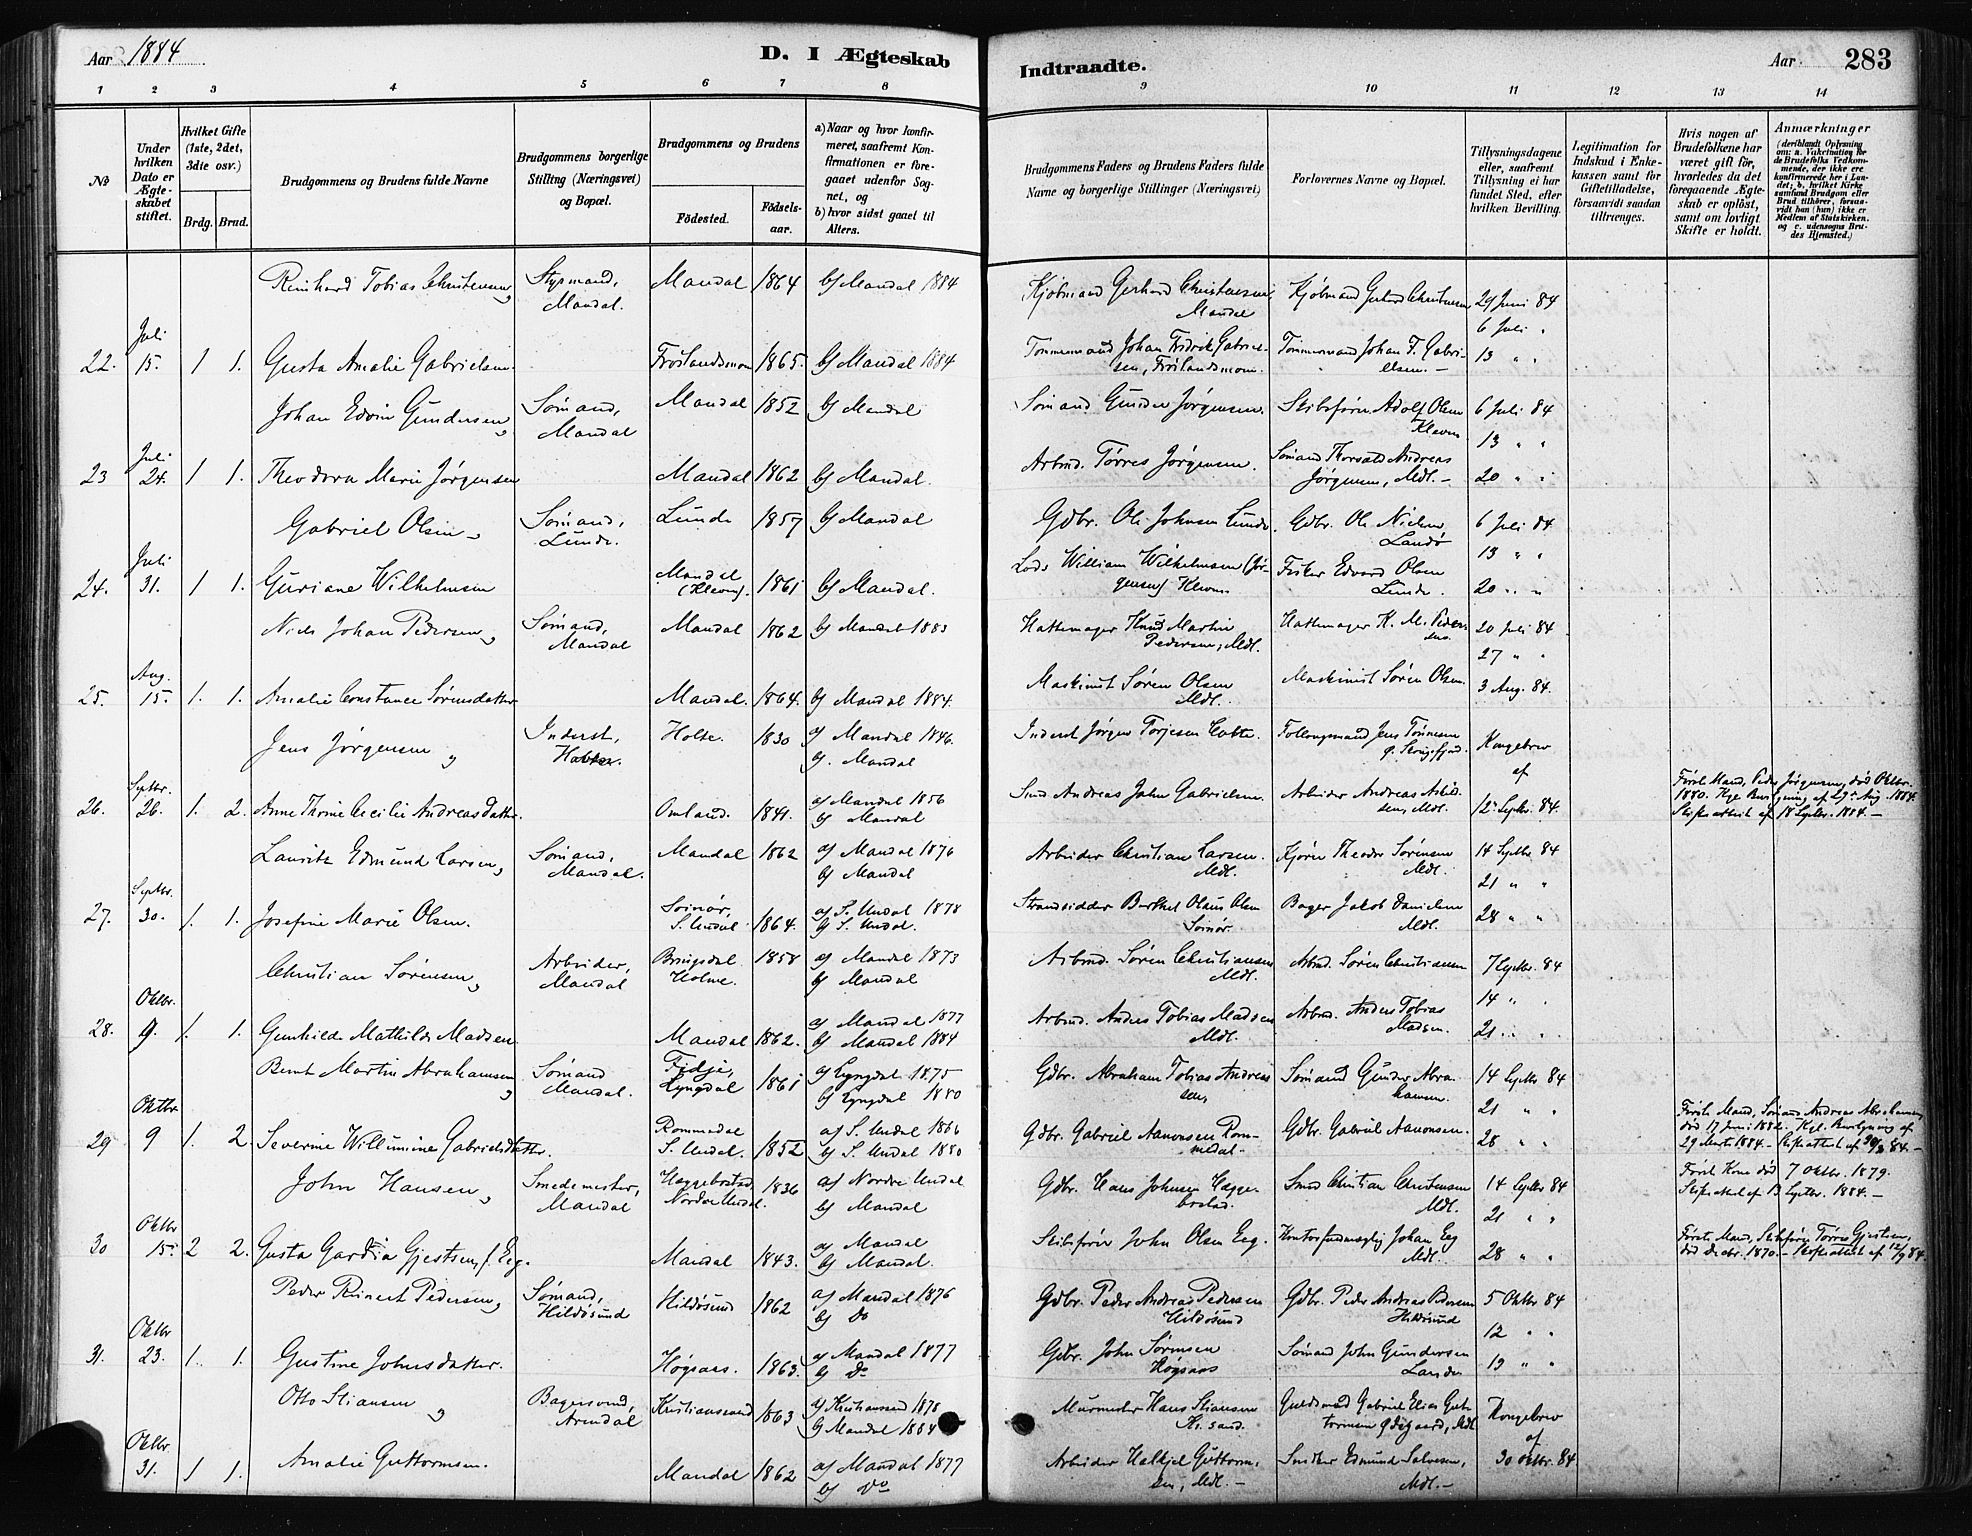 Aar 1884
D. I Ægteskab
Indtraadte.
Aar 283
1 2 3 4 5 6 7 8 9 10 11 12 13 14
No
Under hvilken Dato er Ægteskabet stiftet.
Hvilket Gifte (1ste, 2det, 3die osv.)
Brdg. Brud.
Brudgommens og Brudens fulde Navne
Brudgommens borgerlige Stilling (Næringsvei) og Bopæl.
Brudgommens og Brudens
Födested.
Födselsaar.
a) Naar og hvor konfirmeret, saafremt Konfirmationen er foregaaet udenfor Sognet, og
b) hvor sidst gaaet til Alters.
Brudgommens Faders og Brudens Faders fulde Navne og borgerlige Stillinger (Næringsvei)
Forlovernes Navne og Bopæl.
Tillysningsdagene eller, saafremt Tillysning ei har fundet Sted, efter hvilken Bevilling.
Legitimation for Indskud i Enkekassen samt for Giftetilladelse, forsaavidt saadan tiltrænges.
Hvis nogen af Brudefolkene har været gift før, hvorledes da det foregaaende Ægteskab er oplöst, samt om lovligt Skifte er holdt.
Anmærkninger (deriblandt Oplysning om: a. Vakcination for de Brudefolks Vedkommende, der ikke ere konfirmerede her i Landet; b. hvilket Kirkesamfund Brudgom eller Brud tilhörer, forsaavidt han (hun) ikke er Medlem af Statskirken, og c. udensogns Brudes Hjemsted.)
Reinhard Tobias Christensen, Styrmand, Mandal. Mandal 1864 b) Mandal 1884 Kjøbmand Gerhard Christensen, Mandal Kjøbmand Gerhard Christensen 29 Juni 84
6 Juli "
22. Juli 15. 1 1. Gusta Amalie Gabrielsen. Frøilandsmoen 1865. b) Mandal 1884 Tømmermand Johan Fredrik Gabrielsen, Frøilandsmoen. Tømmermand Johan F. Gabrielsen. – 13 " "
Johan Edvin Gundersen, Sømand, Mandal Mandal 1852 b) Mandal Sømand Gunder Jørgensen. Skibsfører Adolf Olsen Kleven 6 Juli 84
13 " "
23 Juli 24. 1 1. Theodora Marie Jørgensen Mandal 1862 b) Mandal. Arbmd. Tørres Jørgensen. Sømand Thorvald Andreas Jørgensen, Mdl. – 20 " "
Gabriel Olsen, Sømand, Lunde. Lunde 1857 b) Mandal Gdbr. Ole Johnsen Lunde. Gdbr. Ole Nielsen Landø 6 Juli 84
13 " "
24. Juli 31. 1 1. Guriane Wilhelmsen Mandal (Kleven). 1861 b) Mandal. Lods William Wilhelmsen (Jørgensen) Kleven. Fisker Edvard Olsen Lunde. 20 " "
Niels Johan Pedersen, Sømand, Mandal Mandal 1862 b) Mandal 1883 Hattemager Knud Martin Pedersen, Mdl. Hattemager K. M. Pedersen. 20 Juli 84
27 " "
25. Aug. 15. 1. 1. Amalie Constance Sørensdatter Mandal. 1864. b) Mandal 1884. Maskinist Søren Olsen Mdl. Maskinist Søren Olsen. 3 Aug. 84.
Jens Jørgensen, Inderst, Holte. 1830 a) Mandal 1846. b). Mandal Inderst Jørgen Torjesen Holte. Jens Tønnesen Kongebrev
af
26. Septbr. 26. 1. 2. Anne Thrine Cecilie Andreasdatter. Omland. 1841. a) Mandal 1856 b) Mandal Smed Andreas John Gabrielsen. Arbeider Andreas Mdl. 12te Septbr. 84.
Første Mand, Peder Jørgensen, død Oktbr. 1880. Kgl. Bevilgning af 29de Aug. 1884. Skifteattest af 18 Septbr. 1884. –
Lauritz Edmund Larsen, Sømand, Mandal. Mandal 1862 a) Mandal 1876 b) Mandal Arbeider Christian Larsen. Mdl. Kjører Theodor Sørensen Mdl. 14 Septbr 84
21 " "
27. Septbr. 30. 1. 1. Josefine Marie Olsen. S. Undal. 1864. a) S. Undal 1878 b) S. Undal. Strandsidder Berthel Olaus Olsen Bager Jakob Danielsen Mdl. 28 " "
Christian Sørensen, Arbeider, Mandal Bringsdal Holme. 1858 a) Mandal 1873 b) Mandal Arbmd. Søren Christiansen Mdl. Arbmd. Søren Christiansen 7 Septbr. 84
14 " "
28. Oktbr. 9. 1. 1. Gunhilde Mathilde Madsen. Mandal 1862. a) Mandal 1877 b) Mandal 1884 Arbmd. Anders Tobias Madsen Mdl. Arbmd. Anders Tobias Madsen. 21 " "
Bernt Martin Abrahamsen, Sømand Mandal. Fedje, Lyngdal 1861 a) Lyngdal 1875 b) Lyngdal 1880 Gdbr. Abraham Tobias Andreassen, Sømand Gunder Abrahamsen. 14 Septbr 84
21 " "
29 Oktbr 9 1. 2 Severine Willumine Gabrielsdatter. Rommedal S. Undal. 1852 a) S. Undal 1866 b) S. Undal 1880 Gdbr. Gabriel Aanonsen Rommedal. Gdbr. Gabriel Aanonsen. 28 " "
Første Mand, Sømand Andreas Abrahamsen, død 17 Juni 1882. Kgl. Bevilgning af 29 Marts 1884. – Skifteattest af 84. –
John Hansen, Smedemester, Mandal Heggebostad Nordre Undal. 1836 a) Nordre Undal b) Mandal Gdbr. Hans Johnsen Heggebostad. Smed Christian Christensen Mdl. 14 Septbr 84
21 " "
Første Kone død 7 Oktbr. 1879. Skifteattest af 13 Septbr. 1884. –
30 Oktbr 15. 2 2. Gusta Gjestsen, f. Eeg. Mandal 1843. a) Mandal b) Mandal. Skibsfører John Olsen Eeg. Kontorfuldmægtig Johan Eeg Mdl. 28 " "
Første Mand, Skibsfører Tørres Gjestsen, død Decbr. 1870. – Skifteattest af 12/9 84.
Peder Reinert Pedersen, Sømand, Hildøsund Hildøsund 1862 a) Mandal 1876 b) Do Gdbr. Peder Andreas Pedersen Hildøsund Gdbr. Peder Andreas Hildøsund 5 Oktbr 84
12 " "
31. Oktbr 23. 1. 1. Gustine Johnsdatter. Høgsaas. 1863. a) Mandal 1877 b) Do Gdbr. John Sørensen Høgsaas Sømand John Gundersen Lande 19 " "
Otto Stiansen, Bagersvend, Arendal Kristianssand 1863 a) Kristianssand 1878 b) Mandal 1884 Murmester Hans Stiansen Kr.sand. Guldsmed Gabriel Elias Guttormsen Ødegaard, Mdl Kongebrev
af
Oktbr. 31. 1 1. Amalie Guttormsen. Mandal 1862 a) Mandal 1877 b) Do Arbeider Halkjel Guttormsen, Mdl. – Snedker Edmund Salvesen, Mdl. – 30 Oktbr. 84